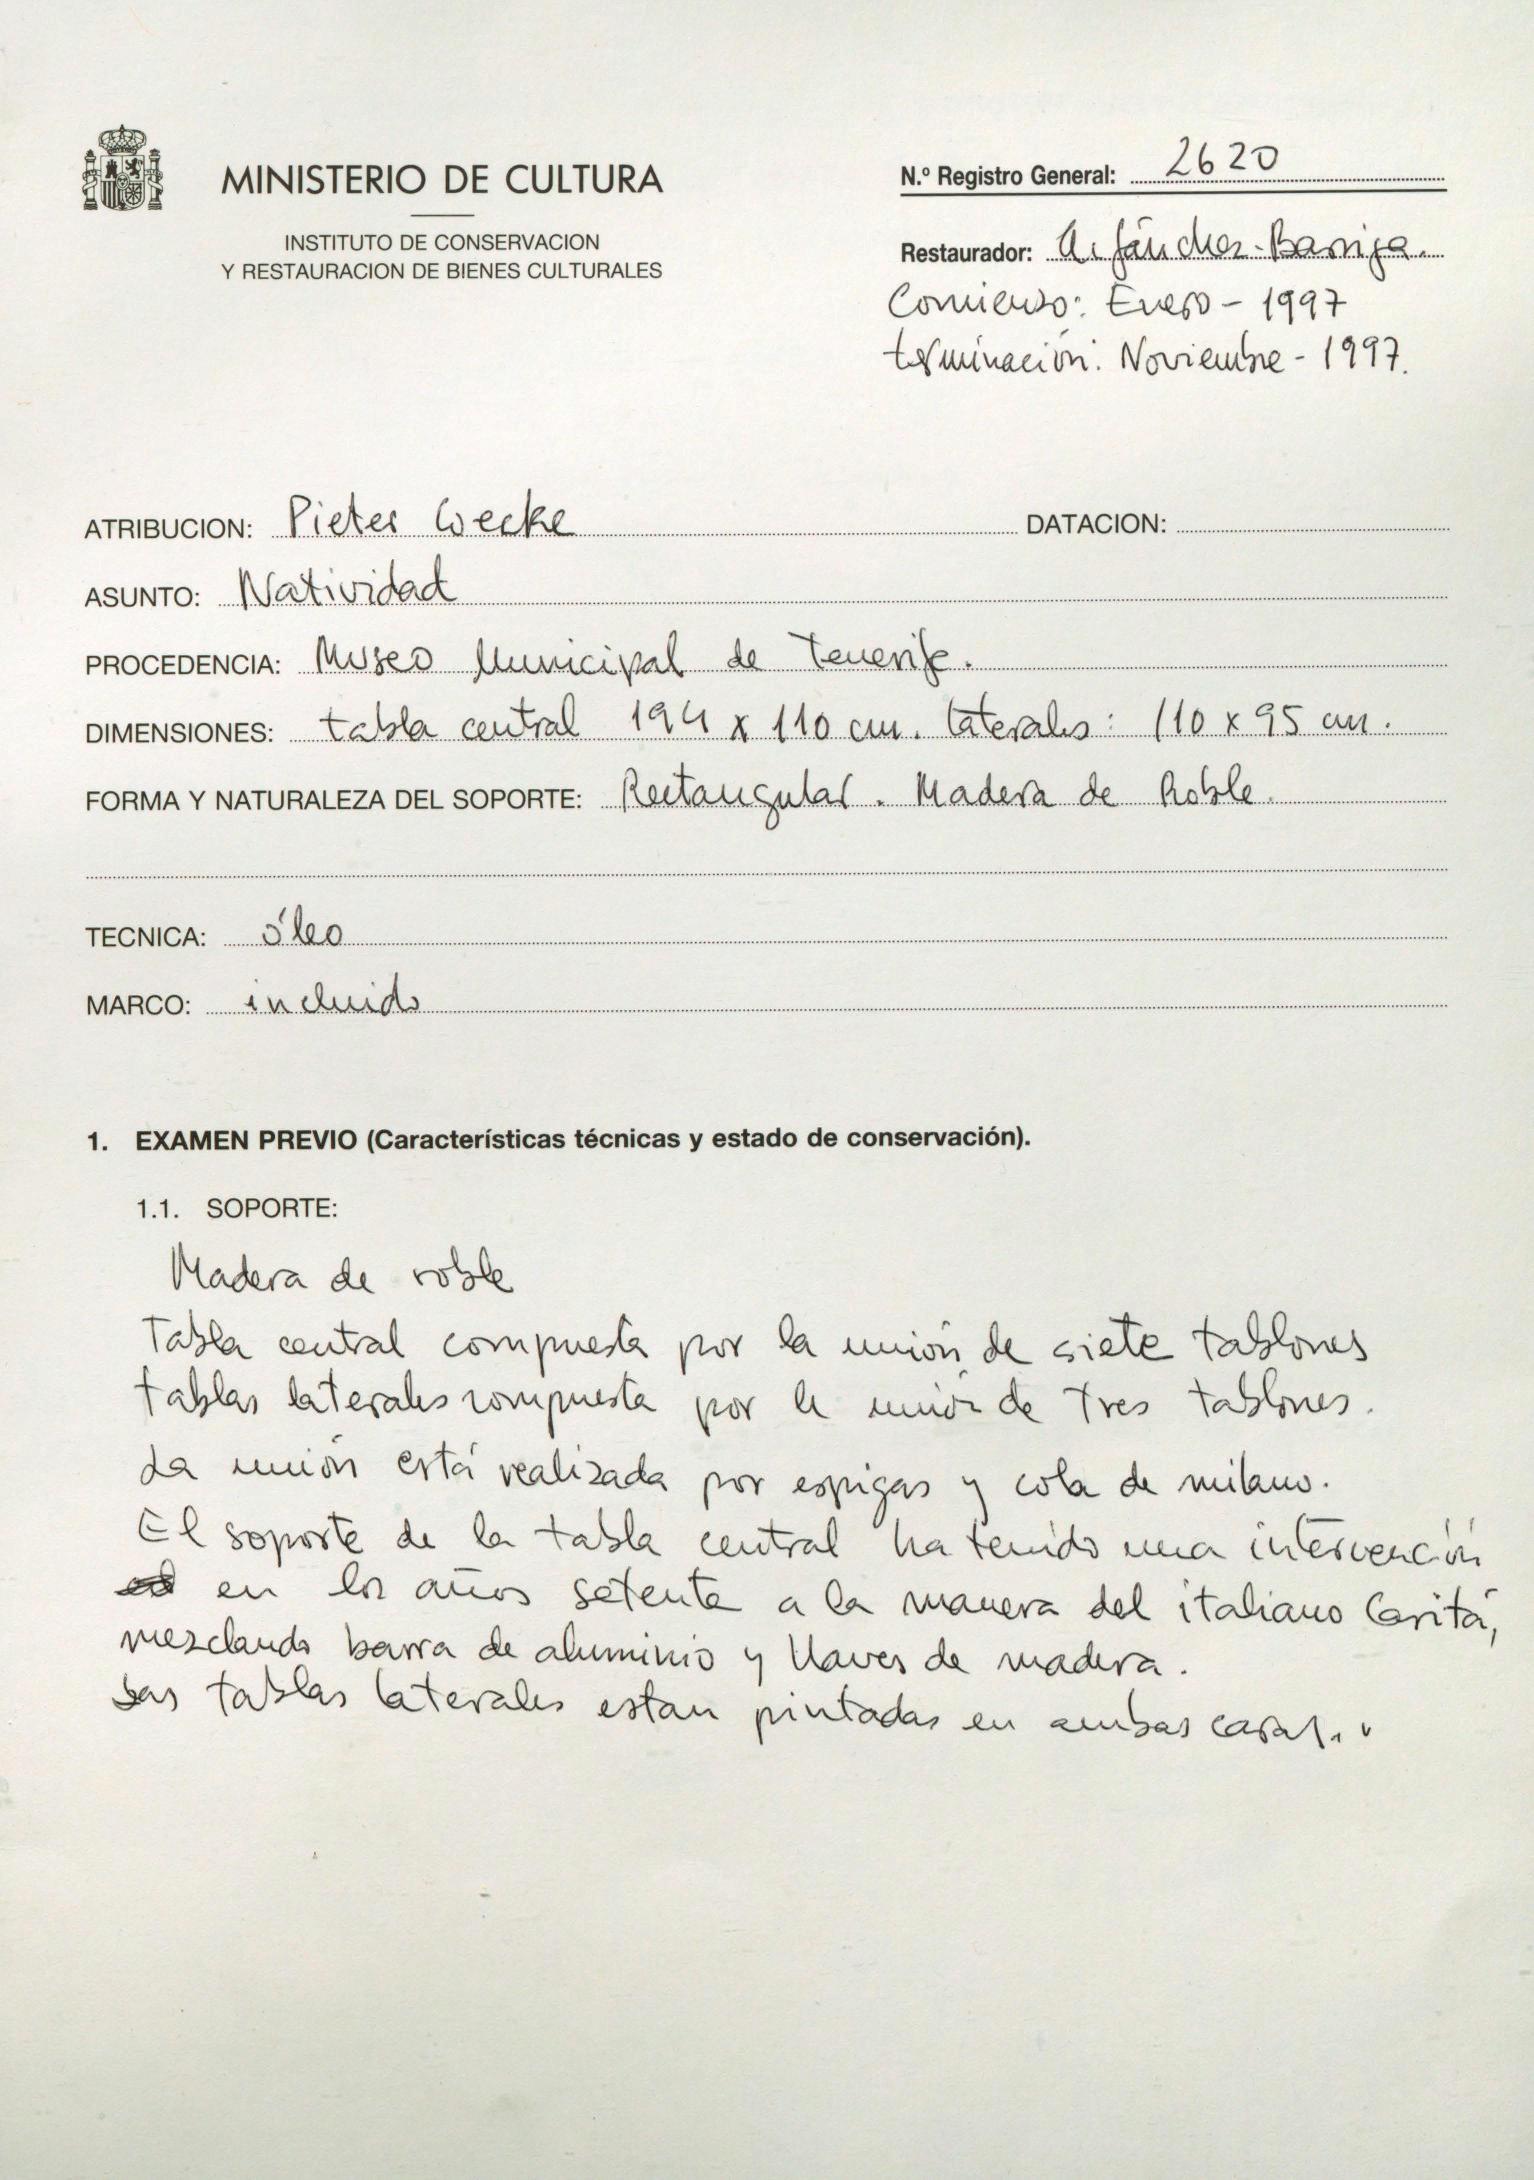 MINISTERIO DE CULTURA
INSTITUTO DE CONSERVACION
Y RESTAURACION DE BIENES CULTURALES
N.º Registro General: 2620
Restaurador: A. Sánchez-Barriga.
Comienzo: Enero - 1997
terminación: Noviembre - 1997.
ATRIBUCION: Pieter Coecke DATACION:
ASUNTO: Natividad
PROCEDENCIA: Museo Municipal de Tenerife.
DIMENSIONES: tabla central 194 x 110 cm. laterales: 110 x 95 cm.
FORMA Y NATURALEZA DEL SOPORTE: Rectangular. Madera de Roble.
TECNICA: óleo
MARCO: incluido
1. EXAMEN PREVIO (Características técnicas y estado de conservación).
1.1. SOPORTE:
Madera de roble
Tabla central compuesta por la unión de siete tablones
tablas laterales compuesta por la unión de tres tablones.
La unión está realizada por espigas y cola de milano.
El soporte de la tabla central ha tenido una intervención
en los años setenta a la manera del italiano Caritá,
mezclando barra de aluminio y llaves de madera.
Las tablas laterales estan pintadas en ambas caras.